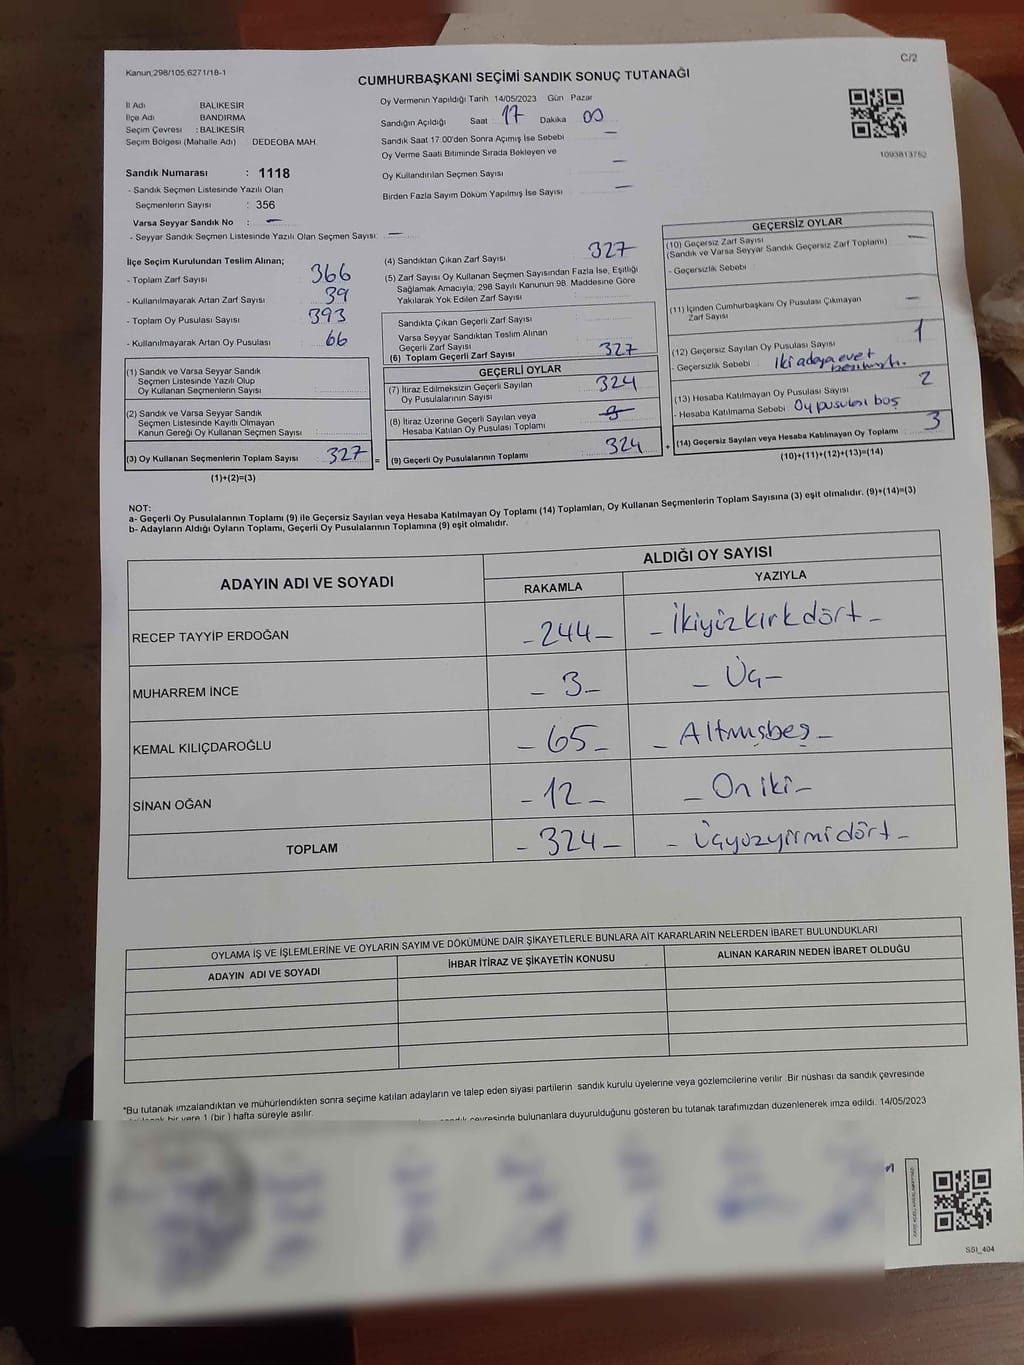 Kanun;298/105,6271/18-1
C/2
CUMHURBAŞKANI SEÇİMİ SANDIK SONUÇ TUTANAĞI
İl Adı BALIKESİR
İlçe Adı BANDIRMA
Seçim Çevresi : BALIKESİR
Seçim Bölgesi (Mahalle Adı) DEDEOBA MAH.
Oy Vermenin Yapıldığı Tarih 14/05/2023 Gün Pazar
Sandığın Açıldığı Saat 17 Dakika 00
Sandık Saat 17:00'den Sonra Açımış İse Sebebi —
Oy Verme Saati Bitiminde Sırada Bekleyen ve
Oy Kullandırılan Seçmen Sayısı —
Birden Fazla Sayım Döküm Yapılmış İse Sayısı —
1093813762
Sandık Numarası : 1118
- Sandık Seçmen Listesinde Yazılı Olan
Seçmenlerin Sayısı : 356
Varsa Seyyar Sandık No : —
- Seyyar Sandık Seçmen Listesinde Yazılı Olan Seçmen Sayısı: —
İlçe Seçim Kurulundan Teslim Alınan;
- Toplam Zarf Sayısı 366
- Kullanılmayarak Artan Zarf Sayısı 39
- Toplam Oy Pusulası Sayısı 393
- Kullanılmayarak Artan Oy Pusulası 66
(1) Sandık ve Varsa Seyyar Sandık
Seçmen Listesinde Yazılı Olup
Oy Kullanan Seçmenlerin Sayısı
(2) Sandık ve Varsa Seyyar Sandık
Seçmen Listesinde Kayıtlı Olmayan
Kanun Gereği Oy Kullanan Seçmen Sayısı
(3) Oy Kullanan Seçmenlerin Toplam Sayısı 327 =
(1)+(2)=(3)
(4) Sandıktan Çıkan Zarf Sayısı 327
(5) Zarf Sayısı Oy Kullanan Seçmen Sayısından Fazla İse, Eşitliği
Sağlamak Amacıyla; 298 Sayılı Kanunun 98. Maddesine Göre
Yakılarak Yok Edilen Zarf Sayısı
Sandıkta Çıkan Geçerli Zarf Sayısı
Varsa Seyyar Sandıktan Teslim Alınan
Geçerli Zarf Sayısı
(6) Toplam Geçerli Zarf Sayısı 327
GEÇERLİ OYLAR
(7) İtiraz Edilmeksizin Geçerli Sayılan
Oy Pusulalarının Sayısı 324
(8) İtiraz Üzerine Geçerli Sayılan veya
Hesaba Katılan Oy Pusulası Toplamı
(9) Geçerli Oy Pusulalarının Toplamı 324 +
GEÇERSİZ OYLAR
(10) Geçersiz Zarf Sayısı —
(Sandık ve Varsa Seyyar Sandık Geçersiz Zarf Toplamı)
- Geçersizlik Sebebi
(11) İçinden Cumhurbaşkanı Oy Pusulası Çıkmayan
Zarf Sayısı —
(12) Geçersiz Sayılan Oy Pusulası Sayısı 1
- Geçersizlik Sebebi İki adaya evet
(13) Hesaba Katılmayan Oy Pusulası Sayısı 2
- Hesaba Katılmama Sebebi Oy pusulası boş
(14) Geçersiz Sayılan veya Hesaba Katılmayan Oy Toplamı 3
(10)+(11)+(12)+(13)=(14)
NOT:
a- Geçerli Oy Pusulalarının Toplamı (9) ile Geçersiz Sayılan veya Hesaba Katılmayan Oy Toplamı (14) Toplamları, Oy Kullanan Seçmenlerin Toplam Sayısına (3) eşit olmalıdır. (9)+(14)=(3)
b- Adayların Aldığı Oyların Toplamı, Geçerli Oy Pusulalarının Toplamına (9) eşit olmalıdır.
ADAYIN ADI VE SOYADI
ALDIĞI OY SAYISI
RAKAMLA YAZIYLA
RECEP TAYYİP ERDOĞAN -244- -İkiyüzkırkdört-
MUHARREM İNCE -3- -Üç-
KEMAL KILIÇDAROĞLU -65- -Altmışbeş-
SİNAN OĞAN -12- -On iki-
TOPLAM -324- -Üçyüzyirmidört-
OYLAMA İŞ VE İŞLEMLERİNE VE OYLARIN SAYIM VE DÖKÜMÜNE DAİR ŞİKAYETLERLE BUNLARA AİT KARARLARIN NELERDEN İBARET BULUNDUKLARI
ADAYIN ADI VE SOYADI İHBAR İTİRAZ VE ŞİKAYETİN KONUSU ALINAN KARARIN NEDEN İBARET OLDUĞU
*Bu tutanak imzalandıktan ve mühürlendikten sonra seçime katılan adayların ve talep eden siyasi partilerin sandık kurulu üyelerine veya gözlemcilerine verilir .Bir nüshası da sandık çevresinde
bir yere 1 (bir ) hafta süreyle asılır.
çevresinde bulunanlara duyurulduğunu gösteren bu tutanak tarafımızdan düzenlenerek imza edildi. 14/05/2023
SSI_404